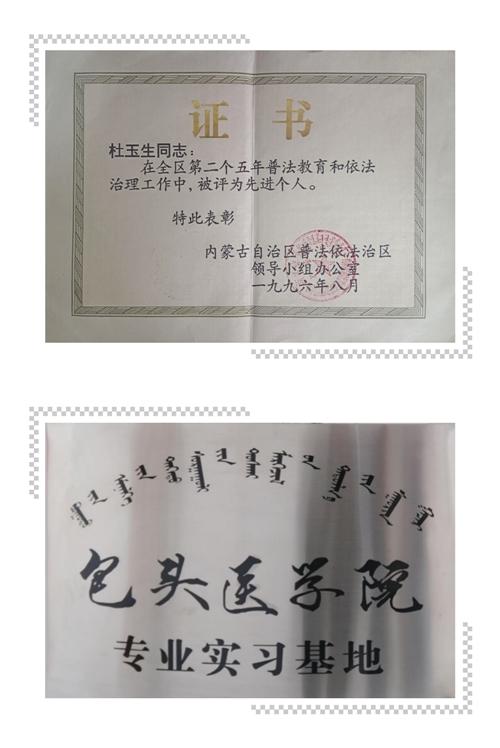 证书
杜玉生同志：
在全区第二个五年普法教育和依法
治理工作中，被评为先进个人。
特此表彰
内蒙古自治区普法依法治区
领导小组办公室
一九九六年八月
包头医学院
专业实习基地